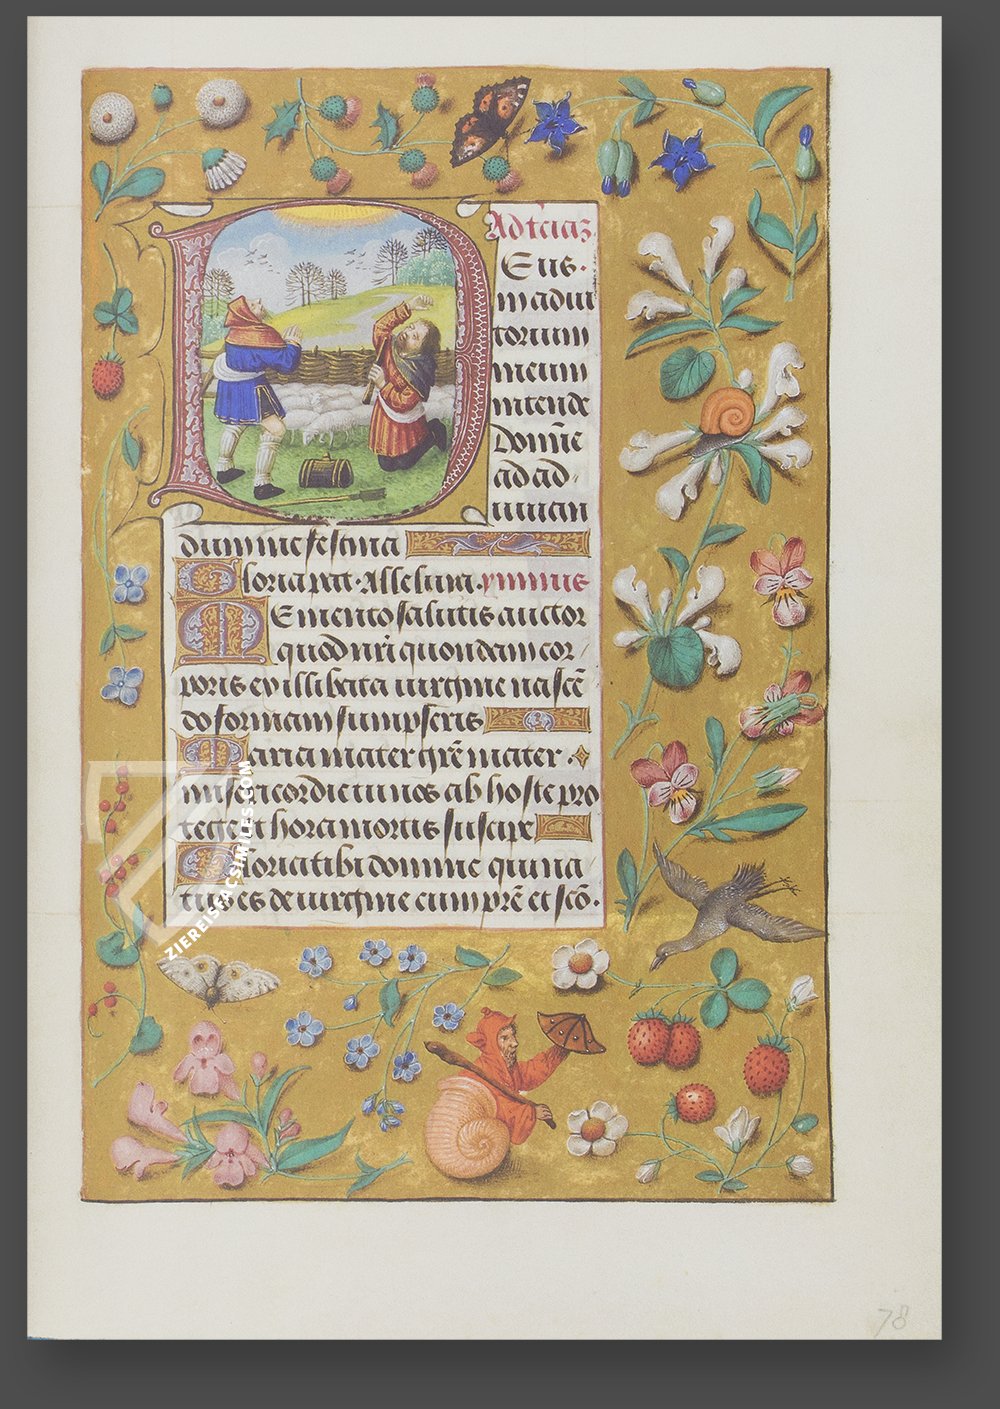 Ad tcias
Eus
in adiut
orium
meum
intende
Domīe
ad ad
iuuan
dum me festina
Gloria patri. Alleluia. ymnus
Memento salutis auctor
quod nr̄i quondam cor
poris ex illibata uirgine nascē
do formam sumpseris
Maria mater gr̄e mater
misericordie tu nos ab hoste pro
tege et hora mortis suscipe
Gloria tibi domine qui na
tus es de uirgine cum pr̄e et scō.
ZIEREIS FACSIMILES.COM
78